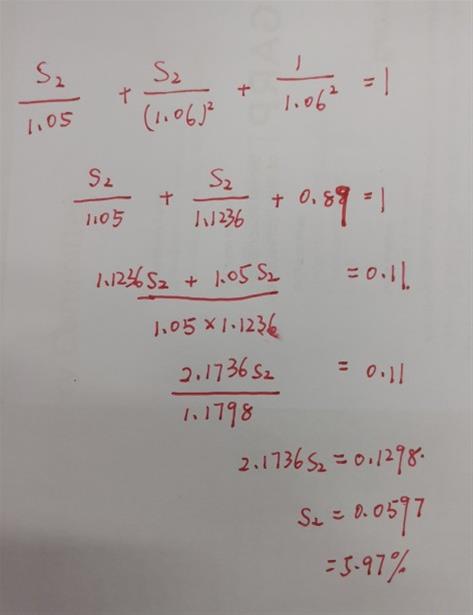 S₂/1.05 + S₂/(1.06)² + 1/1.06² = 1
S₂/1.05 + S₂/1.1236 + 0.89 = 1
1.1236S₂ + 1.05S₂ / 1.05 × 1.1236 = 0.11
2.1736S₂ / 1.1798 = 0.11
2.1736S₂ = 0.1298.
S₂ = 0.0597
= 5.97%